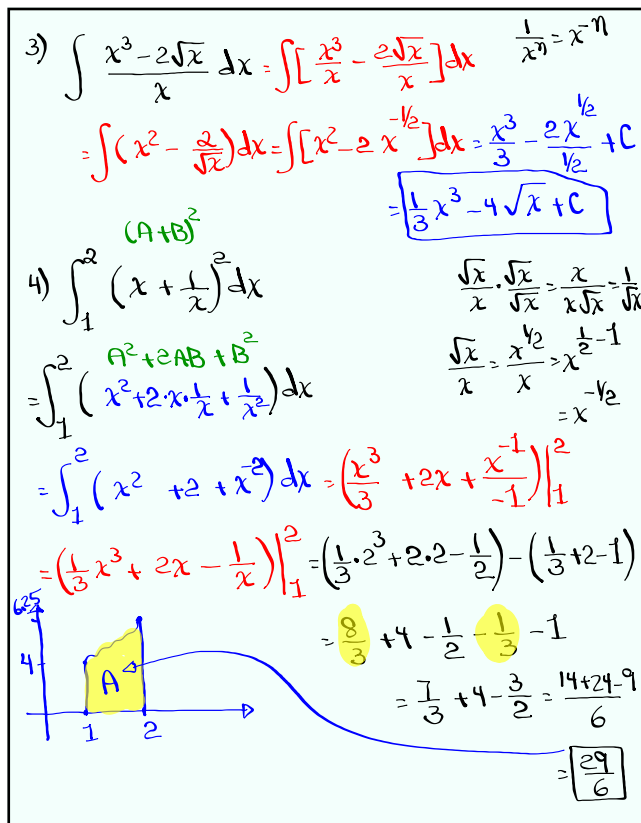 3) ∫ (x³ - 2√x)/x dx = ∫[x³/x - 2√x/x]dx    1/xⁿ = x⁻ⁿ
= ∫(x² - 2/√x)dx = ∫[x² - 2x^(-1/2)]dx = x³/3 - 2x^(1/2)/(1/2) + C
= 1/3 x³ - 4√x + C
(A+B)²
4) ∫₁² (x + 1/x)² dx    √x/x · √x/√x = x/(x√x) = 1/√x
A² + 2AB + B²
= ∫₁² (x² + 2·x·1/x + 1/x²) dx    √x/x = x^(1/2)/x = x^(1/2 - 1)
= x^(-1/2)
= ∫₁² (x² + 2 + x⁻²) dx = (x³/3 + 2x + x⁻¹/-1)|₁²
= (1/3 x³ + 2x - 1/x)|₁² = (1/3·2³ + 2·2 - 1/2) - (1/3 + 2 - 1)
= 8/3 + 4 - 1/2 - 1/3 - 1
= 7/3 + 4 - 3/2 = (14+24-9)/6
= 29/6
6.25
4
A
1 2